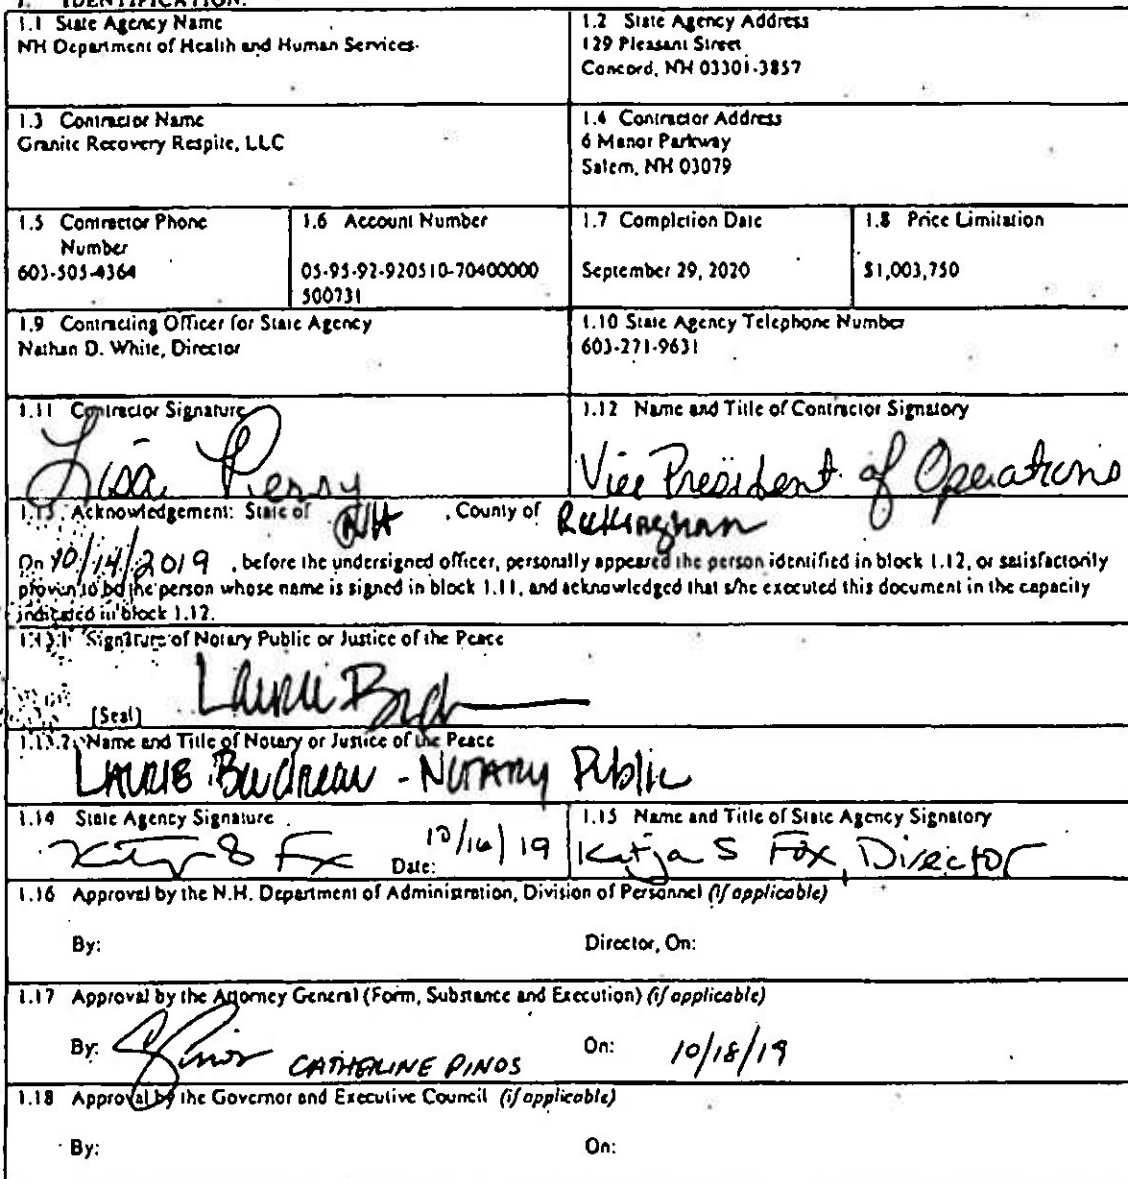 1. IDENTIFICATION.
1.1 State Agency Name
NH Department of Health and Human Services
1.2 State Agency Address
129 Pleasant Street
Concord, NH 03301-3857
1.3 Contractor Name
Granite Recovery Respite, LLC
1.4 Contractor Address
6 Manor Parkway
Salem, NH 03079
1.5 Contractor Phone
Number
603-505-4364
1.6 Account Number
05-95-92-920510-70400000
500731
1.7 Completion Date
September 29, 2020
1.8 Price Limitation
$1,003,750
1.9 Contracting Officer for State Agency
Nathan D. White, Director
1.10 State Agency Telephone Number
603-271-9631
1.11 Contractor Signature
Lisa Perry
1.12 Name and Title of Contractor Signatory
Vice President of Operations
1.13 Acknowledgement: State of NH , County of Rockingham
On 10/14/2019 , before the undersigned officer, personally appeared the person identified in block 1.12, or satisfactorily
proven to be the person whose name is signed in block 1.11, and acknowledged that s/he executed this document in the capacity
indicated in block 1.12.
1.13.1 Signature of Notary Public or Justice of the Peace
Laurie
[Seal]
1.13.2 Name and Title of Notary or Justice of the Peace
LAURIE Boudreau - NOTARY Public
1.14 State Agency Signature
Date: 10/16/19
1.15 Name and Title of State Agency Signatory
Katja S Fox, Director
1.16 Approval by the N.H. Department of Administration, Division of Personnel (if applicable)
By: Director, On:
1.17 Approval by the Attorney General (Form, Substance and Execution) (if applicable)
By: CATHERINE PINOS On: 10/18/19
1.18 Approval by the Governor and Executive Council (if applicable)
By: On: